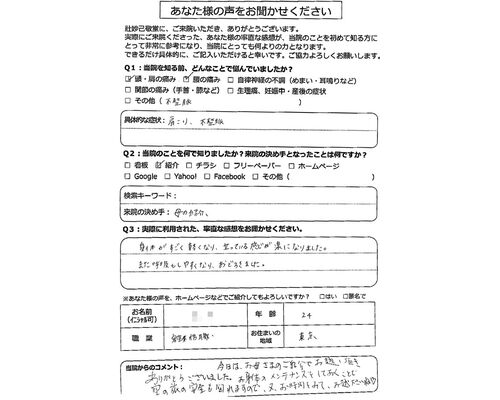 あなた様の声をお聞かせください
壮妙己敬堂に、ご来院いただき、ありがとうございます。
実際にご来院くださった、あなた様の率直な感想が、当院のことを初めて知る方に
とって非常に参考になり、当院にとっても何よりの力となります。
できるだけ具体的に、ご記入いただけると幸いです。ご協力よろしくお願いします。
Q1：当院を知る前、どんなことで悩んでいましたか？
☑ 頭・肩の痛み ☑ 腰の痛み □ 自律神経の不調（めまい・耳鳴りなど）
□ 関節の痛み（手首・膝など） □ 生理痛、妊娠中・産後の症状
□ その他（不整脈 ）
具体的な症状： 肩こり、不整脈
Q2：当院のことを何で知りましたか？来院の決め手となったことは何ですか？
□ 看板 ☑ 紹介 □ チラシ □ フリーペーパー □ ホームページ
□ Google □ Yahoo! □ Facebook □ その他（ ）
検索キーワード：
来院の決め手： 母の紹介、
Q3：実際に利用された、率直な感想をお聞かせください。
身体がすごく軽くなり、立っている感じが楽になりました。
また呼吸もしやすくなり、おどろきました。
※あなた様の声を、ホームページなどでご紹介してもよろしいですか？ □はい □匿名で
お名前
（イニシャル可）
年 齢 24
職 業
お住まいの
地域 東京
当院からのコメント： 今日は、お母さまのご紹介でお越し頂き
ありがとうございました。お身体のメンテナンスをしておくことで
空の旅の安全も図れますので、又、お時間をみて、お越し